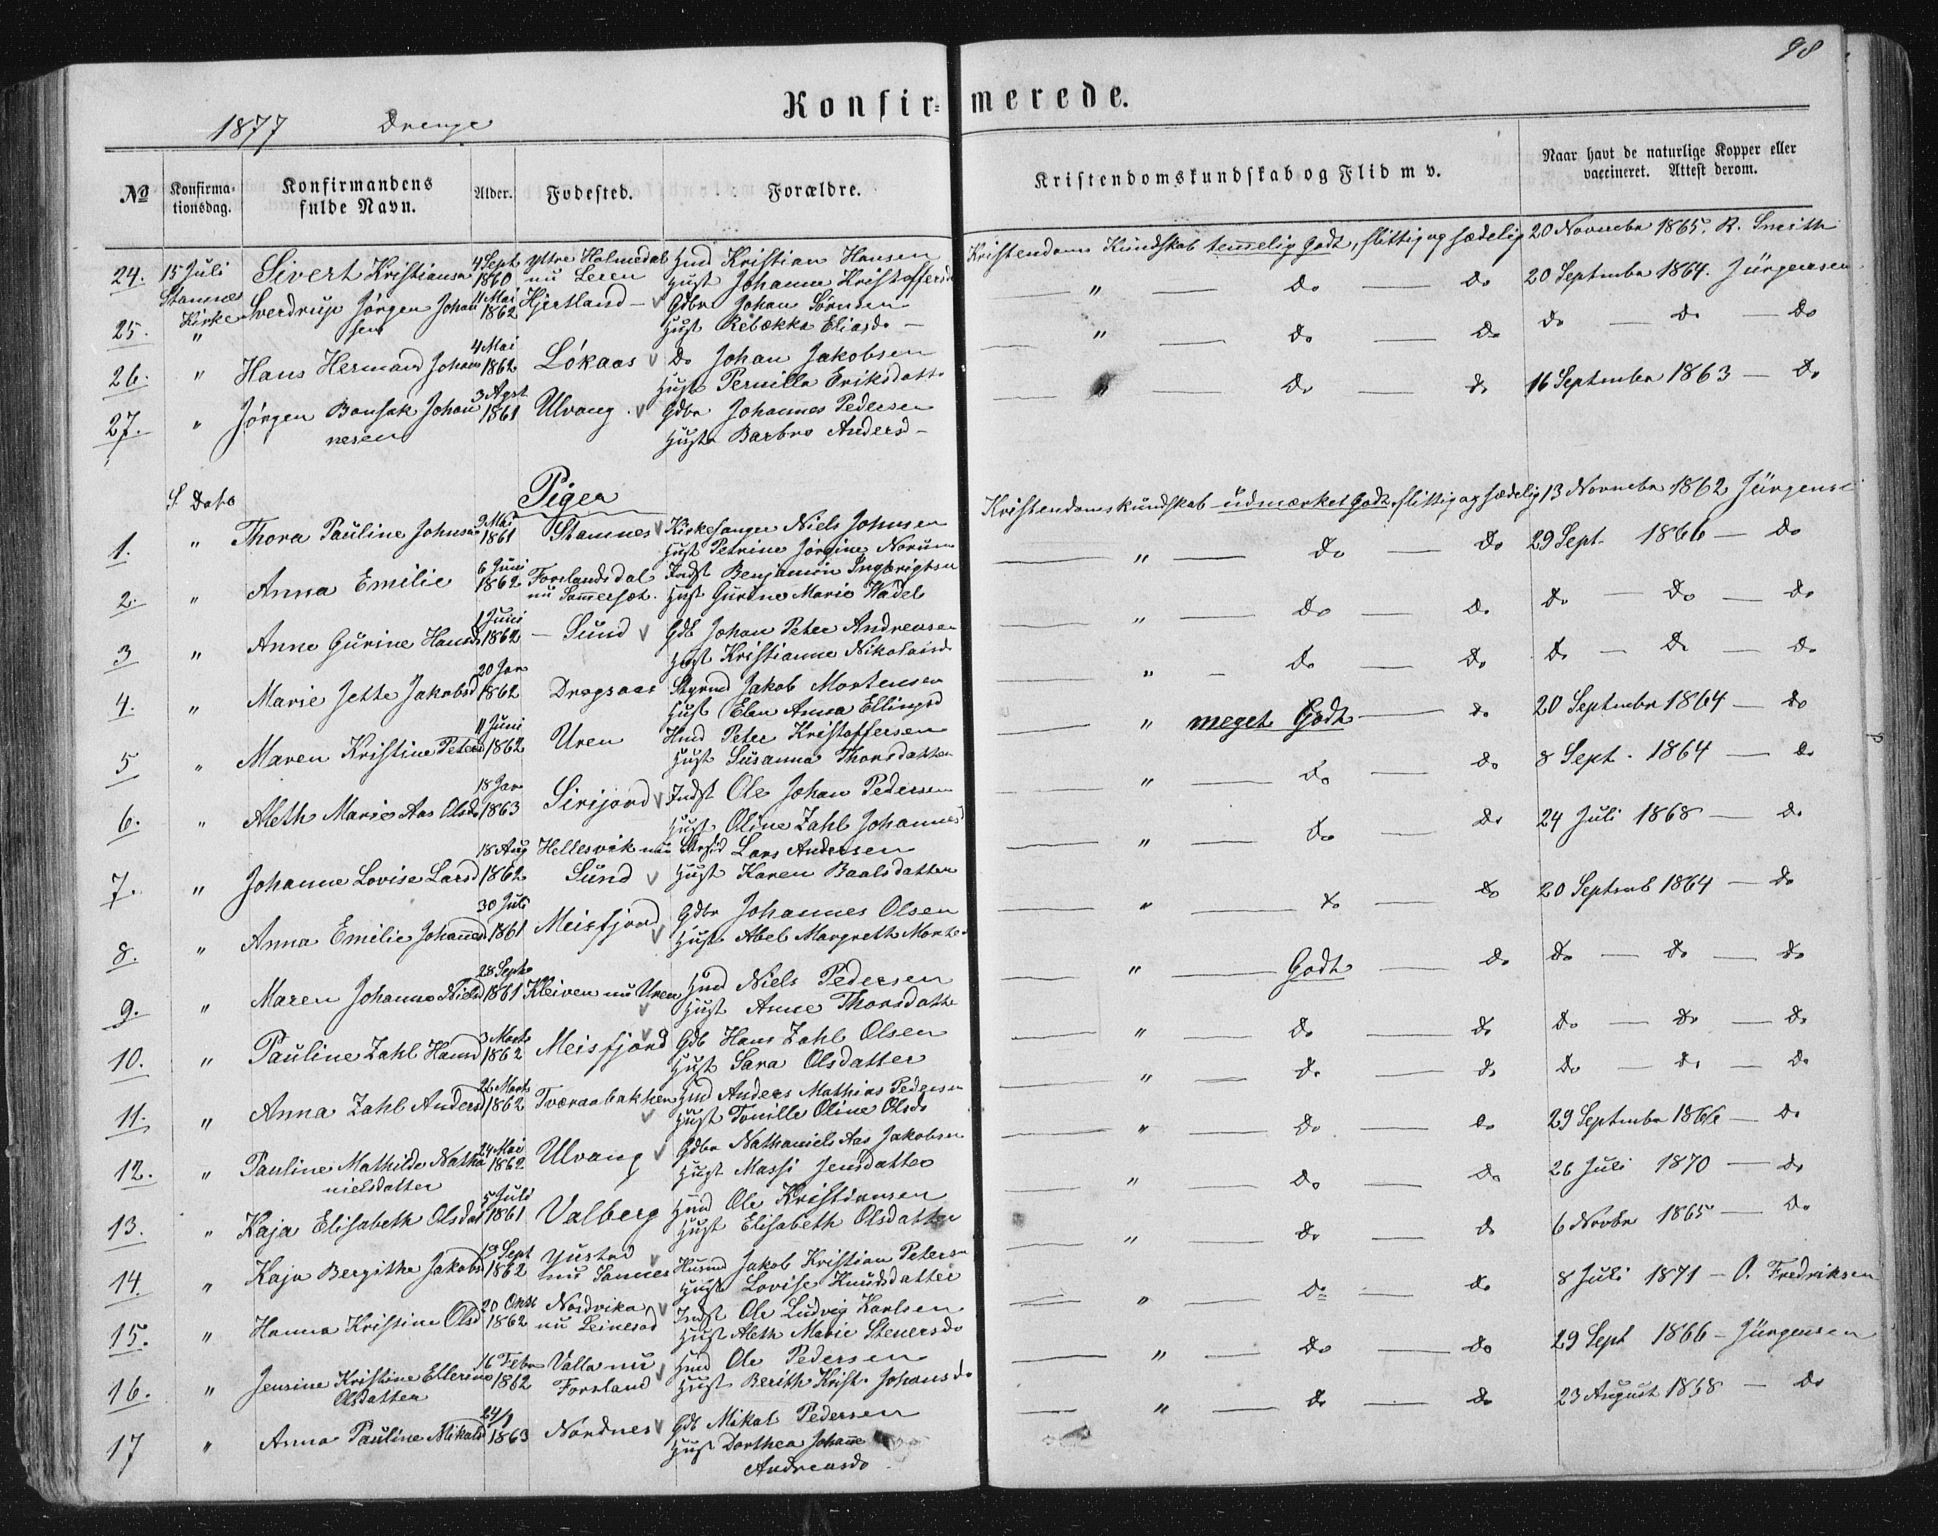 98
Konfir= merede.
1877 Drenge
No
Konfirma-
tionsdag.
Konfirmandens
fulde Navn.
Alder.
Fødested.
Forældre.
Kristendomskundskab og Flid m v.
Naar havt de naturlige Kopper eller
vaccineret. Attest derom.
24. 15 Juli Sivert Kristiansen 4 Sept 1860 Yttre Holmedal nu Leren Hmd Kristian Hansen
Stamnes Hust Johanne Kristoffersd
Kristendoms Kundskab temmelig Godt, flittig og sædelig 20 November 1865. R. Smith
25. Kirke " Sverdrup Jørgen Johan 4 Mai 1862 Hjertland — Gdbr Johan Sørensen
sen Hust Rebekka Eliasd —
" do do 20 September 1864. Jürgensen
26. " Hans Hermand Johans 4 Mai 1862 Løkaas Do Johan Jakobsen
Hust Pernilla Eriksdatter
" do do do — do — do
27. " Jørgen Bonsak Johan 3 Agst 1861 Ulvang Gdbr Johannes Pedersen
nesen Hust Barbro Andersd —
" do do 16 September 1863 — do
S. Dato Pigen
1. " Thora Pauline Johnsen 9 Mai 1861 Stamnes Kirkesanger Niels Johnsen
Hust Petrine Jørgine Norum
Kristendomskundskab udmærket Godt, flittig og sædelig 13 November 1862 Jürgense
2. " Anna Emilie 6 Juni 1862 Forslandsdal nu Sommersæt. Indst Benjamin Ingebrigtsen
Hust Gurine Marie Wadel
" do do 29 Sept. 1866 — do
3 " Anne Gurine Hansd 1 Juni 1862 — Sund Gdb Johan Peter Andreasen
Hust Kristianne Nikolaisd
" do do do — do — do
4. " Marie Jette Jakobsd 20 Jan 1862 Dragsaas Styrmd Jakob Mortensen
Hust Elen Anna Ellingsd
" do do do — do — do
5 " Maren Kristine Petersd 11 Juni 1862 Uren Hmd Peter Kristoffersen
Hust Susanna Thorsdatter
" meget Godt do 20 September 1864 — do
6. " Aleth Marie Aas Olsd 18 Jan 1863 Sirijord Indst Ole Johan Pedersen
Hust Oline Zahl Johannesd
" do do 8 Sept. 1864 — do
7. " Johanne Lovise Larsd 18 Aug 1862 Hellesvik nu Sund Lars Andersen
Hust Karen Baalsdatter
" do do 24 Juli 1868 — do
8. " Anna Emilie Johannesd 30 Juli 1861 Meisfjord Gdbr Johannes Olsen
Hust Abel Margreth Morte
" do do 20 Septemb 1864 — do
9. " Maren Johanne Nielsd 28 Sept 1861 Kleiven nu Uren Hmd Niels Pedersen
Hust Anne Thorsdatte
" Godt do do — do — do
10. " Pauline Zahl Hansd 3 Marts 1862 Meisfjord Gdb Hans Zahl Olsen
Hust Sara Olsdatter
" do do do — do — do
11. " Anna Zahl Andersd 26 Mart 1862 Tværaabakken Hmd Anders Mathias Pedersen
Hust Tonille Oline Olsd
" do do do — do — do
12. " Pauline Mathilde Natha 24 Mai 1862. Ulvang Gdbr Nathaniels Aas Jakobsen
nielsdatter Hust Massi Jensdatter
" do do 29 September 1866 — do
13. " Kaja Elisabeth Olsdat 5 Juli 1861 Valberg Hmd Ole Kristiansen
Hust Elisabeth Olsdatter
" do do 26 Juli 1870 — do
14. " Kaja Bergithe Jakobsd 19 Sept 1862 nu Sannes Husmd Jakob Kristian Petersen
Hust Lovise Knudsdatter
" do do 6 Novbr 1865 — do
15. " Hanna Kristine Olsd 20 1862 Nordvika nu Leinesod Indst Ole Ludvig Karlsen
Hust Aleth Marie Stenersd
" do do 8 Juli 1871 — O. Fredriksen
16. " Jensine Kristine Ellerine 16 Febr 1862 Valla nu Forsland Hmd Ole Pedersen
Olsdatter Hust Berith Krist. Johansd
" do do 29 Sept 1866 — Jürgensen
17 " Anna Pauline Mikalsd 24/1 1863 Nordnes Gdb Mikal Pedersen
Hust Dorthea Johanne
Andreasd
" do do 23 August 1868 — do